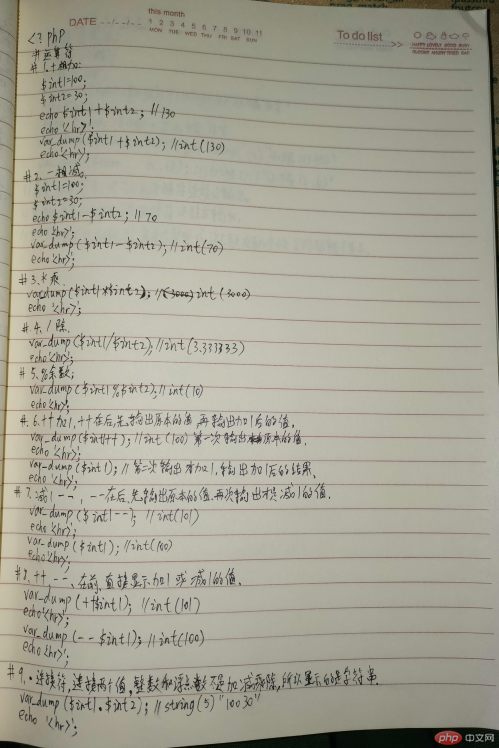 this month
DATE --/--/--
1 2 3 4 5 6 7 8 9 10 11
MON TUE WED THU FRI SAT SUN
To do list
>>
<?php
#运算符
#1.+相加:
$int1=100;
$int2=30;
echo $int1+$int2; //130
echo'<hr>';
var_dump($int1+$int2); //int(130)
echo'<hr>';
#2.一相减
$int1=100;
$int2=30;
echo $int1-$int2; //70
echo'<hr>';
var_dump($int1-$int2); //int(70)
echo'<hr>';
#3.*乘
var_dump($int1*$int2); //int(3000)
echo'<hr>';
#4./除
var_dump($int1/$int2); //int(3.333333)
echo'<hr>';
#5.%余数;
var_dump($int1%$int2); //int(10)
echo'<hr>';
#.6.++加1,++在后,先输出原本的值,再输出加1后的值,
var_dump($int1++); //int(100)第一次输出原本的值,
echo'<hr>';
var_dump($int1); //第一次输出才加1,输出加1后的结果,
#7.减1--,--在后,先输出原本的值.再次输出才减1的值.
var_dump($int1--); //int(101)
echo'<hr>';
var_dump($int1); //int(100)
echo'<hr>';
#8.++--、在前,直接显示加1或减1的值,
var_dump(++$int1); //int(101)
echo'<hr>';
var_dump(--$int1); //int(100)
echo'<hr>';
#9.·连接符,连接两个值,整数和浮点数不是加减乘除,所以显示的是字符串.
var_dump($int1.$int2); //string(5)"10030"
echo'<hr>';
php中文网